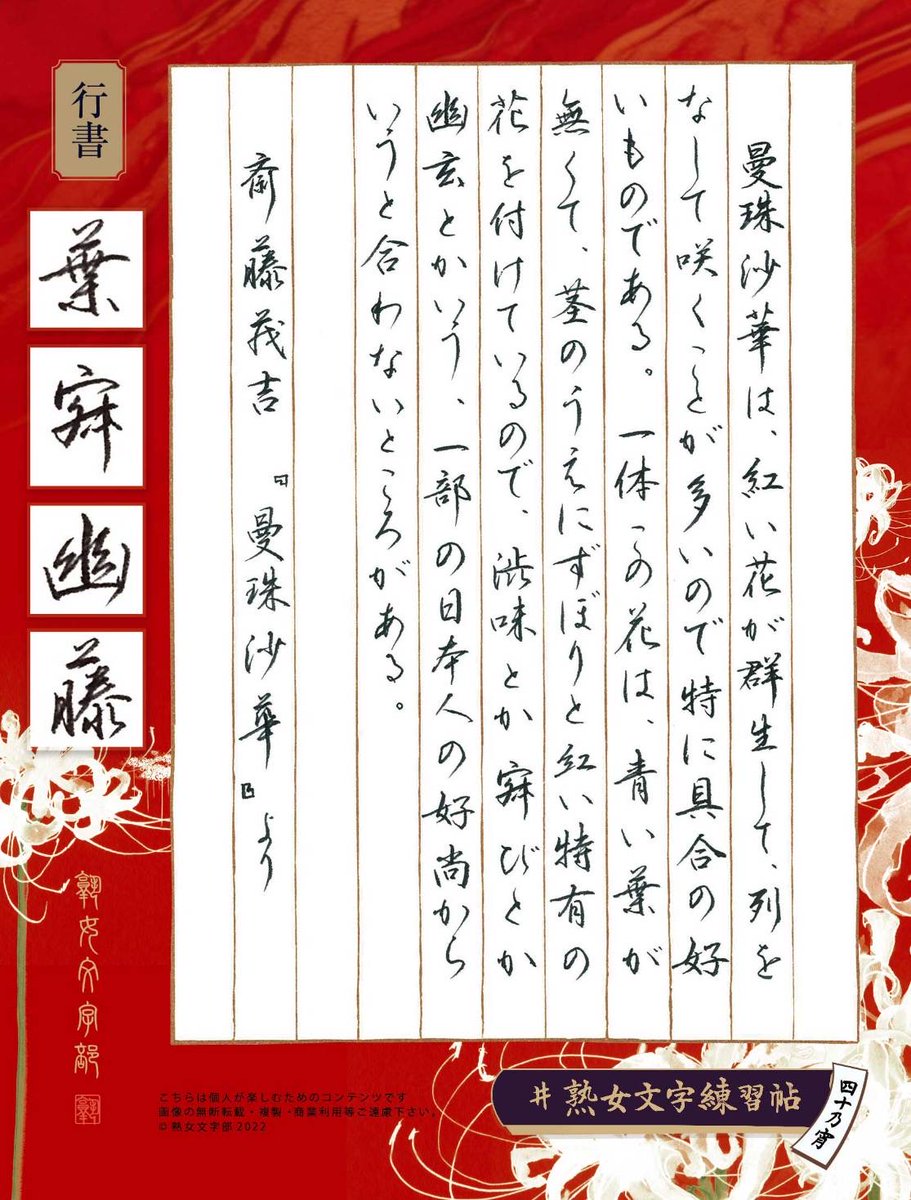 曼珠沙華は、紅い花が群生して、列を
なして咲くことが多いので特に具合の好
いものである。一体この花は、青い葉が
無くて、茎のうえにずぼりと紅い特有の
花を付けているので、渋味とか寂びとか
幽玄とかいう、一部の日本人の好尚から
いうと合わないところがある。
斎藤茂吉 「曼珠沙華」より
行書
葉
寂
幽
藤
熟女文字部
#熟女文字練習帖
四十乃宵
こちらは個人が楽しむためのコンテンツです
画像の無断転載・複製・商業利用等ご遠慮下さい。
© 熟女文字部 2022